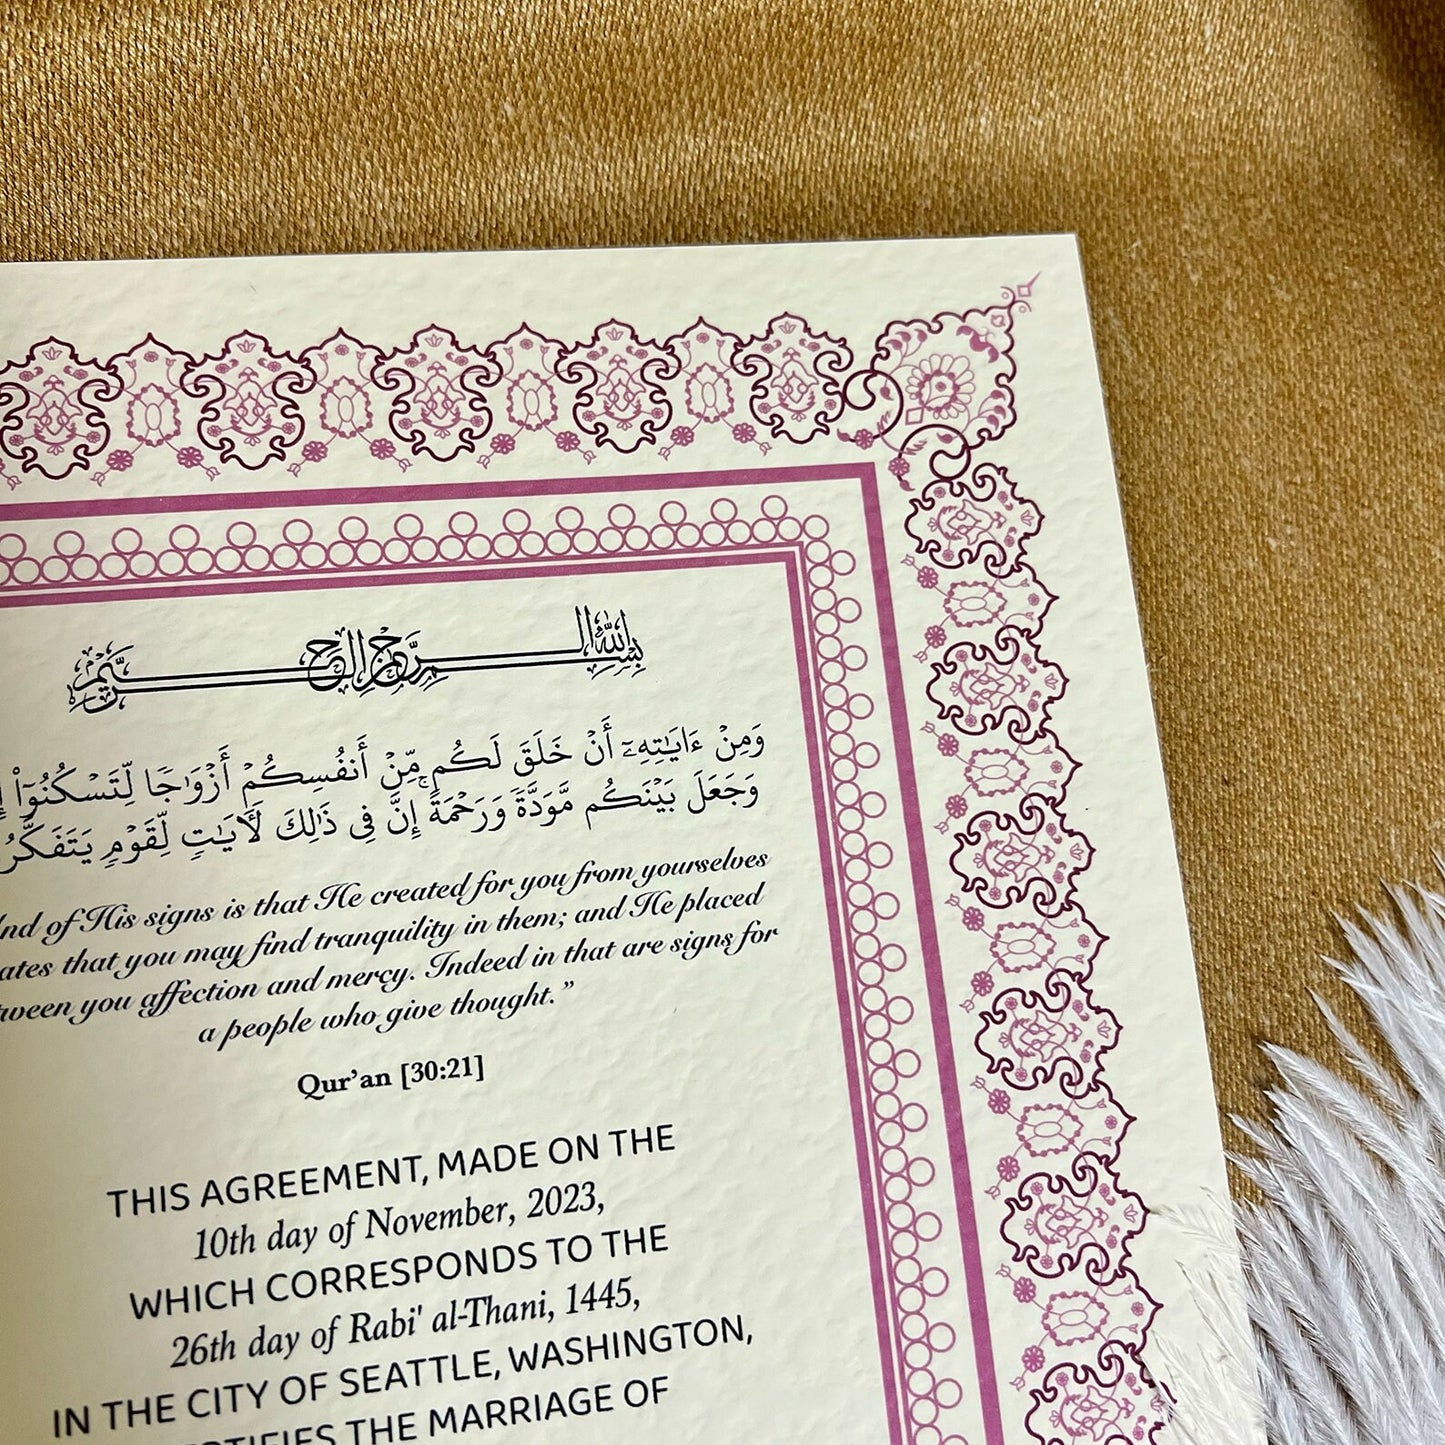 بِسْمِ اللَّهِ الرَّحْمَٰنِ الرَّحِيمِ
وَمِنْ ءَايَٰتِهِۦٓ أَنْ خَلَقَ لَكُم مِّنْ أَنفُسِكُمْ أَزْوَٰجًا لِّتَسْكُنُوٓا۟
وَجَعَلَ بَيْنَكُم مَّوَدَّةً وَرَحْمَةً ۚ إِنَّ فِى ذَٰلِكَ لَءَايَٰتٍ لِّقَوْمٍ
of His signs is that He created for you from yourselves
that you may find tranquility in them; and He placed
you affection and mercy. Indeed in that are signs for
a people who give thought.”
Qur’an [30:21]
THIS AGREEMENT, MADE ON THE
10th day of November, 2023,
WHICH CORRESPONDS TO THE
26th day of Rabi' al-Thani, 1445,
IN THE CITY OF SEATTLE, WASHINGTON,
THE MARRIAGE OF